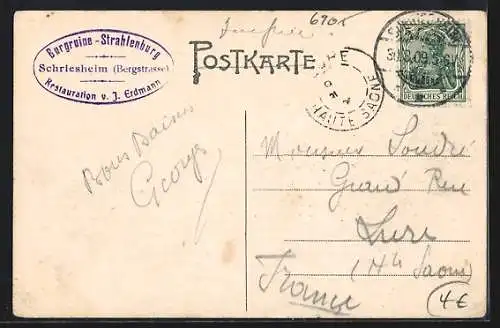 Burgruine-Strahlenburg
Schriesheim (Bergstrasse)
Restauration v. J. Erdmann
POSTKARTE
HAUTE SAONE
DEUTSCHES REICH
Bons Baisers
Georges
Grand Rue
Lure
(Hte Saone)
France
4€